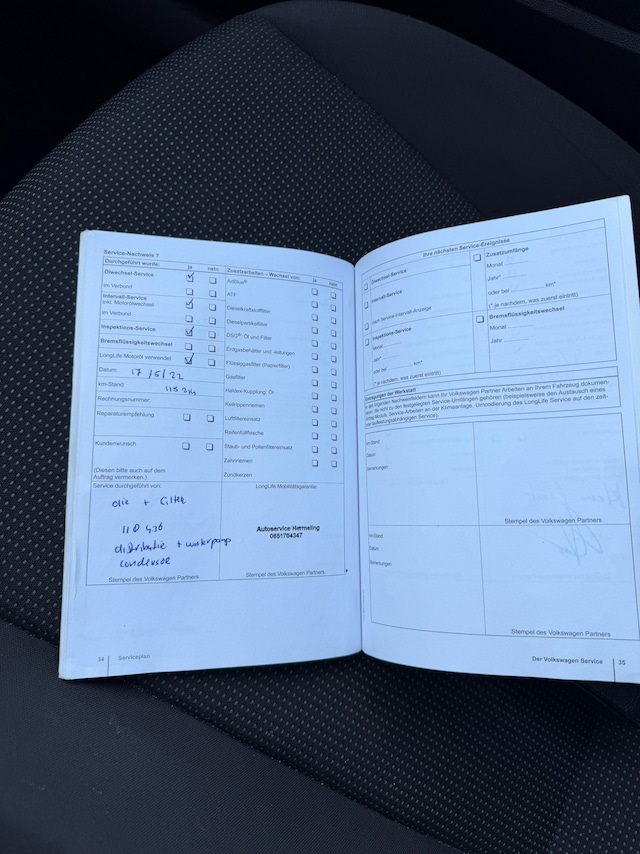 Service-Nachweis 7
Durchgeführt wurde: ja nein
Ölwechsel-Service
im Verbund
Intervall-Service
inkl. Motorölwechsel
im Verbund
Inspektions-Service
Bremsflüssigkeitswechsel
LongLife Motoröl verwendet
Datum: 17/5/22
km-Stand:
Rechnungsnummer:
Reparaturempfehlung
Kundenwunsch
(Diesen bitte auch auf dem
Auftrag vermerken.)
Zusatzarbeiten – Wechsel von: ja nein
AdBlue®
ATF
Dieselkraftstofffilter
Dieselpartikelfilter
DSG®: Öl und Filter
Erdgasbehälter und -leitungen
Flüssiggasfilter (Papierfilter)
Gasfilter
Haldex-Kupplung: Öl
Keilrippenriemen
Luftfiltereinsatz
Reifenfüllflasche
Staub- und Pollenfiltereinsatz
Zahnriemen
Zündkerzen
Service durchgeführt von:
olie + filter
110 436
distributie + waterpomp
condensor
Stempel des Volkswagen Partners
LongLife Mobilitätsgarantie:
Autoservice Hermeling
0651704347
Stempel des Volkswagen Partners
34 Serviceplan
Ihre nächsten Service-Ereignisse
Ölwechsel-Service
Intervall-Service
nach Service-Intervall-Anzeige
Inspektions-Service
Monat
Jahr*
oder bei km*
(* je nachdem, was zuerst eintritt)
Zusatzumfänge
Monat
Jahr*
oder bei km*
(* je nachdem, was zuerst eintritt)
Bremsflüssigkeitswechsel
Monat
Jahr
Eintragungen der Werkstatt
In den folgenden Nachweisfeldern kann Ihr Volkswagen Partner Arbeiten an Ihrem Fahrzeug dokumen-
tieren, die nicht zu den festgelegten Service-Umfängen gehören (beispielsweise den Austausch eines
Airbag Moduls, Service-Arbeiten an der Klimaanlage, Umcodierung des LongLife Service auf den zeit-
oder laufleistungsabhängigen Service).
km-Stand:
Datum
Bemerkungen:
Stempel des Volkswagen Partners
km-Stand:
Datum
Bemerkungen:
Stempel des Volkswagen Partners
Der Volkswagen Service 35